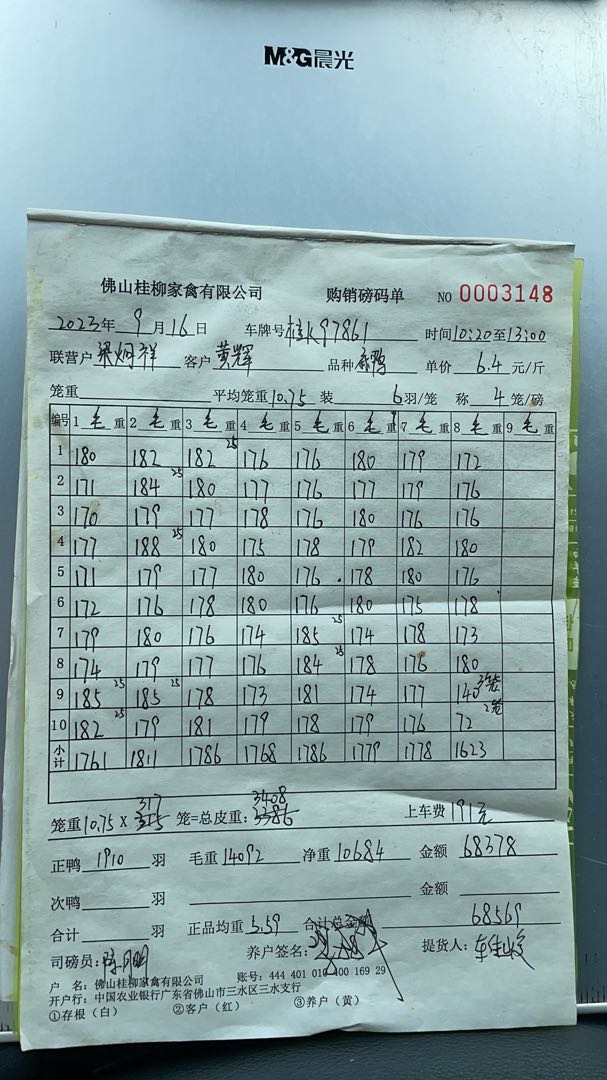 M&G晨光
佛山桂柳家禽有限公司 购销磅码单 NO 0003148
2023年 9月16日 车牌号桂K97861 时间10:20至13:00
联营户 梁炯祥 客户 黄辉 品种 麻鸭 单价 6.4 元/斤
笼重 平均笼重10.75 装 6羽/笼 称 4笼/磅
编号 1毛重 2毛重 3毛重 4毛重 5毛重 6毛重 7毛重 8毛重 9毛重
1 180 182 182 25 176 176 180 179 172
2 171 184 25 180 177 176 177 179 176
3 170 179 177 178 176 180 176 176
4 177 188 25 180 175 178 179 182 180
5 171 179 177 180 176 178 180 176
6 172 176 178 180 176 180 175 178
7 179 180 176 174 185 25 174 178 173
8 174 179 177 176 184 25 178 176 180
9 185 25 185 25 178 173 181 174 177 140 3笼
10 182 25 179 181 179 178 179 176 72 2笼
小计 1761 1811 1786 1768 1786 1779 1778 1623
317 3408
笼重10.75×315 笼=总皮重:3386 上车费 191元
正鸭 1910 羽 毛重14092 净重10684 金额 68378
次鸭 羽 金额
合计 羽 正品均重 5.59 合计总金额 68569
司磅员: 养户签名: 提货人:
户 名:佛山桂柳家禽有限公司 账号:444 401 010 400 169 29
开户行:中国农业银行广东省佛山市三水区三水支行
①存根(白) ②客户(红) ③养户(黄)